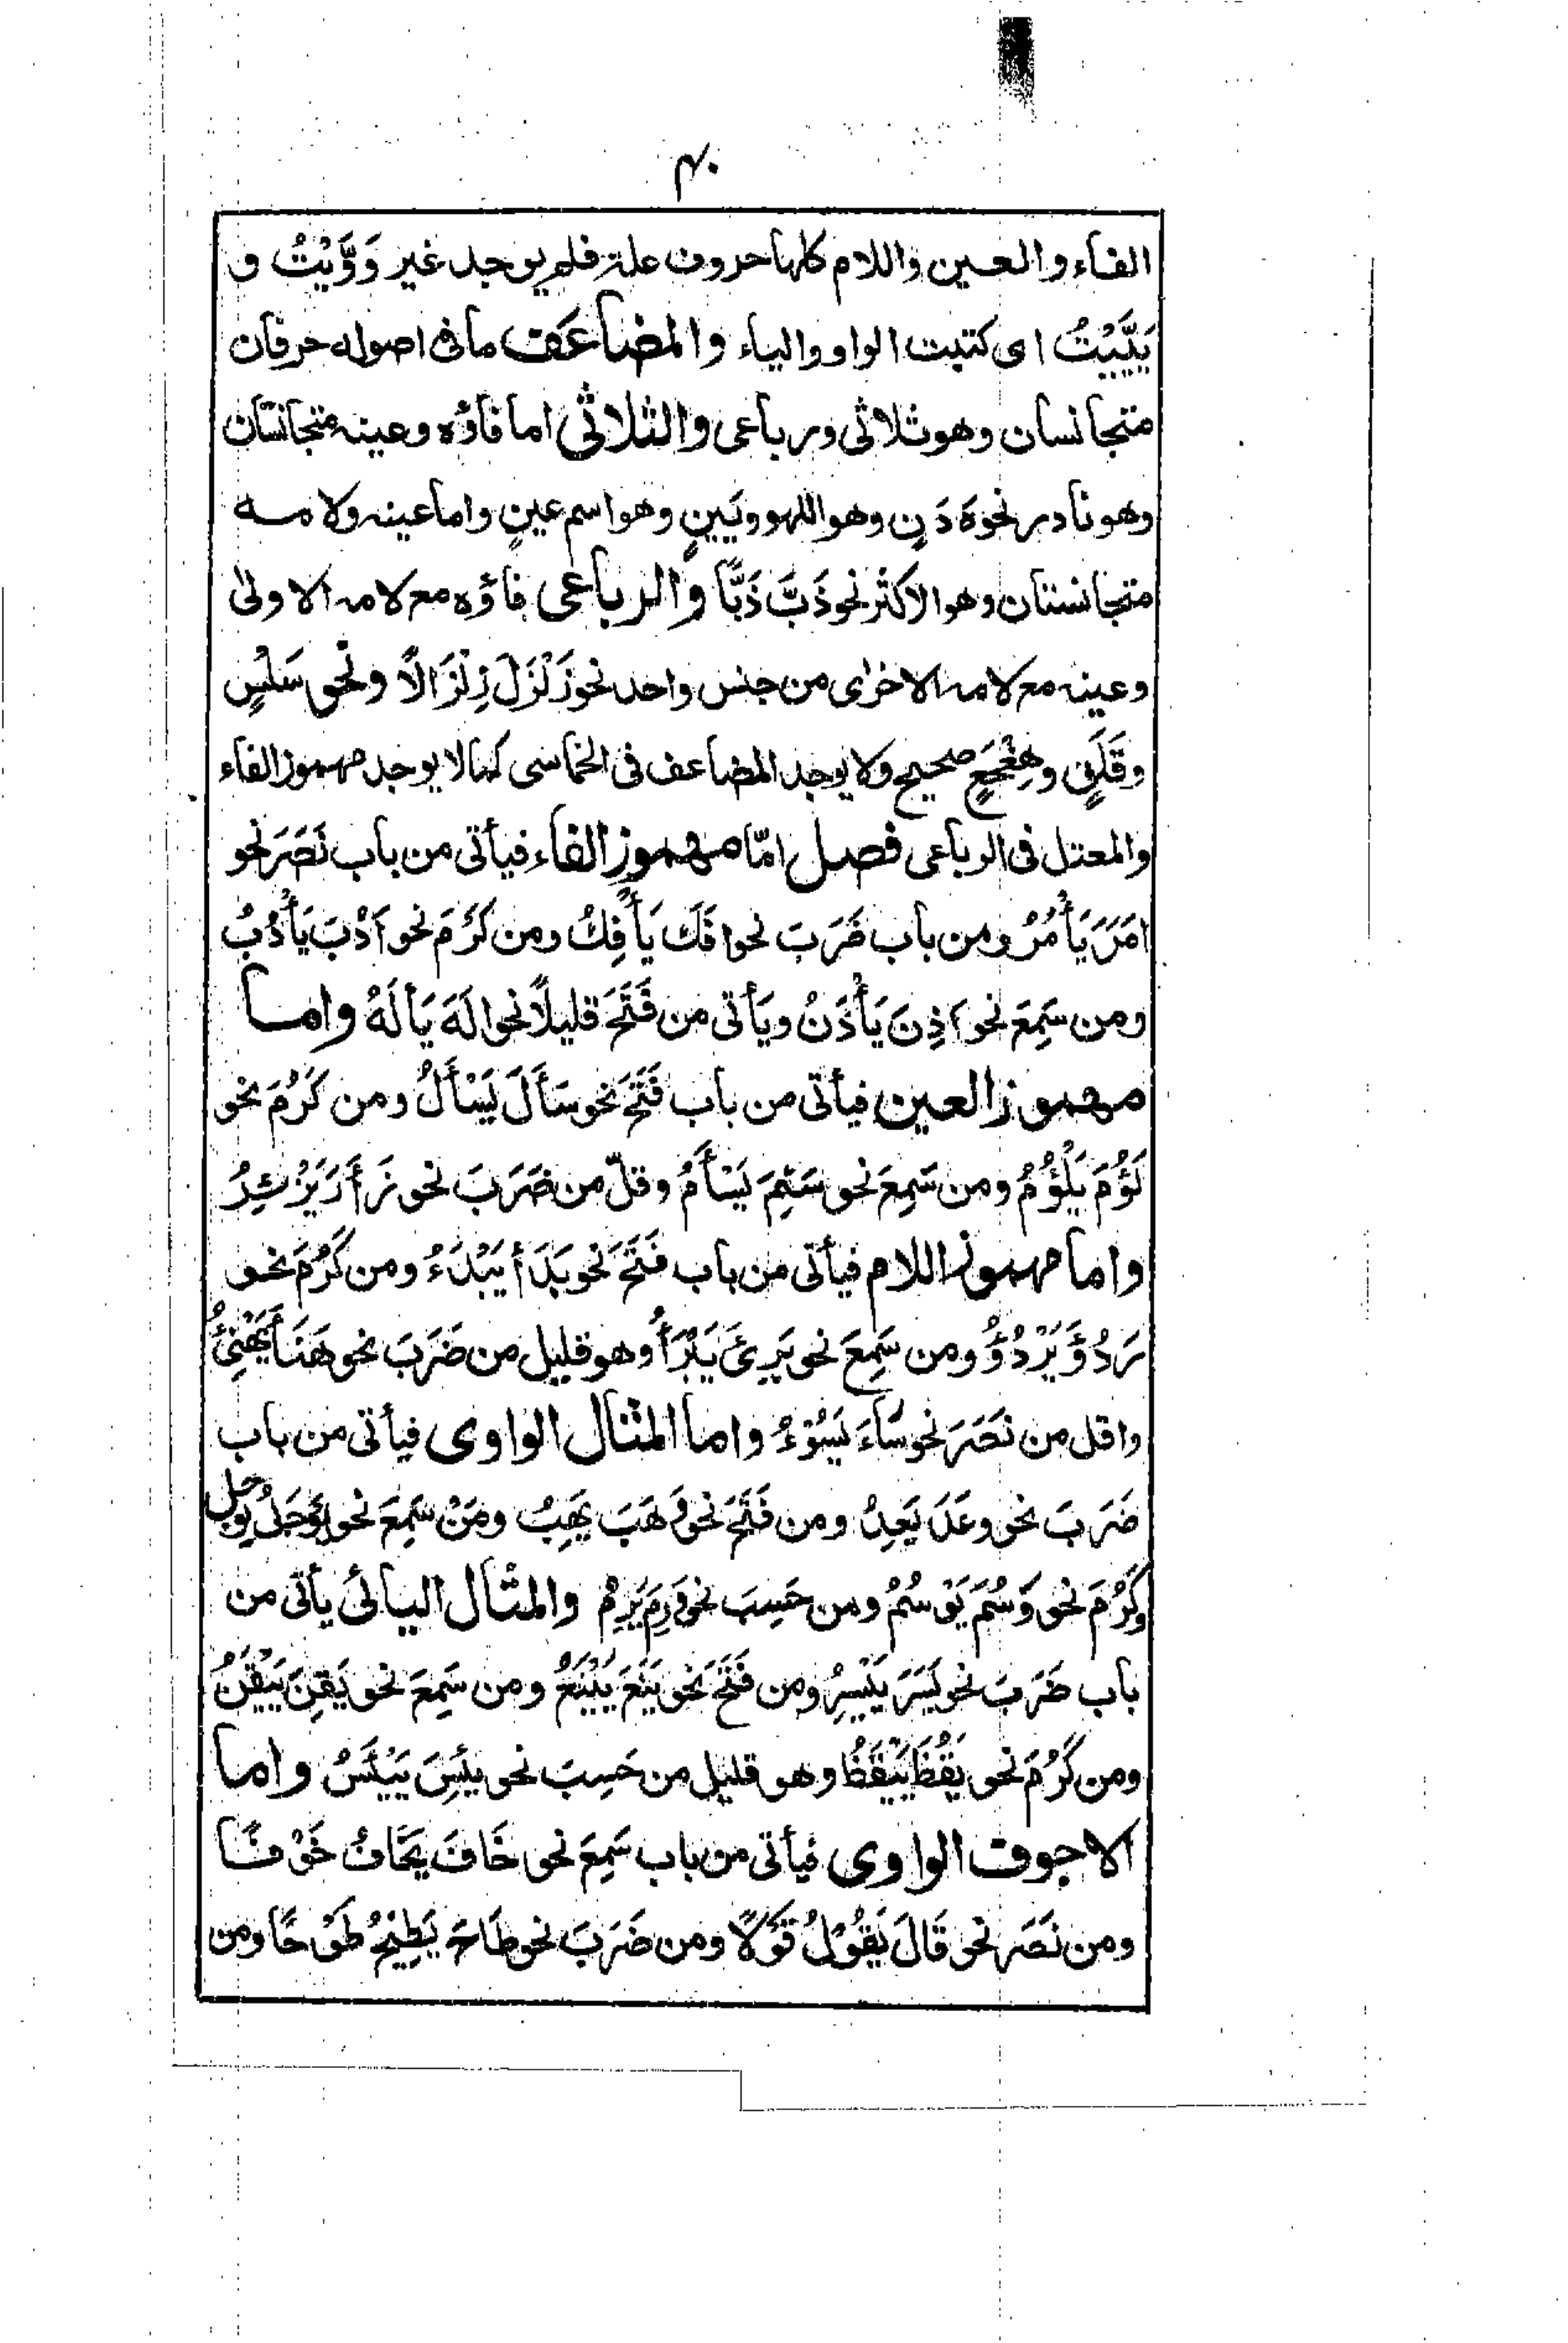 ٤٠
الفاء والعين واللام كلها حروف علة فلم يوجد غير وَوَّيْتُ و
يَيَّيْتُ اى كتبت الواو والياء والمضاعَف ما فى اصوله حرفان
متجانسان وهو ثلاثى ورباعى والثلاثى اما فاؤه وعينه متجانستان
وهو نادر نحو دَدَنٍ وهو اللهو ويَيَينٍ وهو اسم عينٍ واما عينه ولامه
متجانستان وهو الاكثر نحو ذَبَّ ذَبًّا والرباعى فاؤه مع لامه الاولىٰ
وعينه مع لامه الاخرٰى من جنس واحد نحو زَلْزَلَ زِلْزَالًا ونحو سَلْسٍ
وقَلَقٍ و صحيح ولا يوجد المضاعف فى الخماسى كما لا يوجد مهموز الفاء
والمعتل فى الرباعى فصل امّا مهموز الفاء فيأتى من باب نَصَرَ نحو
امَرَ يَأْمُرُ ومن باب ضَرَبَ نحو افَكَ يَأْفِكُ ومن كَرُمَ نحو اَدُبَ يَأْدُبُ
ومن سَمِعَ نحو اَذِنَ يَأْذَنُ ويَأتى من فَتَحَ قليلًا نحو الَهَ يَألَهُ واما
مهموز العين فيأتى من باب فَتَحَ نحو سَأَلَ يَسْأَلُ ومن كَرُمَ نحو
لَؤُمَ يَلْؤُمُ ومن سَمِعَ نحو سَئِمَ يَسْأَمُ وقلّ من ضَرَبَ نحو زَأَرَ يَزْئِرُ
واما مهموز اللام فيأتى من باب فَتَحَ نحو بَدَأَ يَبْدَءُ ومن كَرُمَ نحو
رَدُؤَ يَرْدُؤُ ومن سَمِعَ نحو بَرِئَ يَبْرَأُ وهو قليل من ضَرَبَ نحو هَنَأَ يَهْنِئُ
واقل من نَصَرَ نحو سَاءَ يَسُوْءُ واما المثال الواوى فيأتى من باب
ضَرَبَ نحو وعَدَ يَعِدُ ومن فَتَحَ نحو وَهَبَ يَهِبُ ومَنْ سَمِعَ نحو يَوْجَلُ
وكَرُمَ نحو وَسُمَ يَوْسُمُ ومن حَسِبَ نحو وَرِمَ يَرِمُ والمثال اليائى يأتى من
باب ضَرَبَ نحو يَسَرَ يَيْسِرُ ومن فَتَحَ نحو يَنَعَ يَيْنَعُ ومن سَمِعَ نحو يَقِنَ يَيْقَنُ
ومن كَرُمَ نحو يَقُظَ يَيْقَظُ وهو قليل من حَسِبَ نحو يَئِسَ يَيْئَسُ واما
الاجوف الواوى فيأتى من باب سَمِعَ نحو خَافَ يَخَافُ خَوْفًا
ومن نَصَرَ نحو قَالَ يَقُوْلُ قَوْلًا ومن ضَرَبَ نحو طَاحَ يَطِيْحُ طَوْحًا ومن